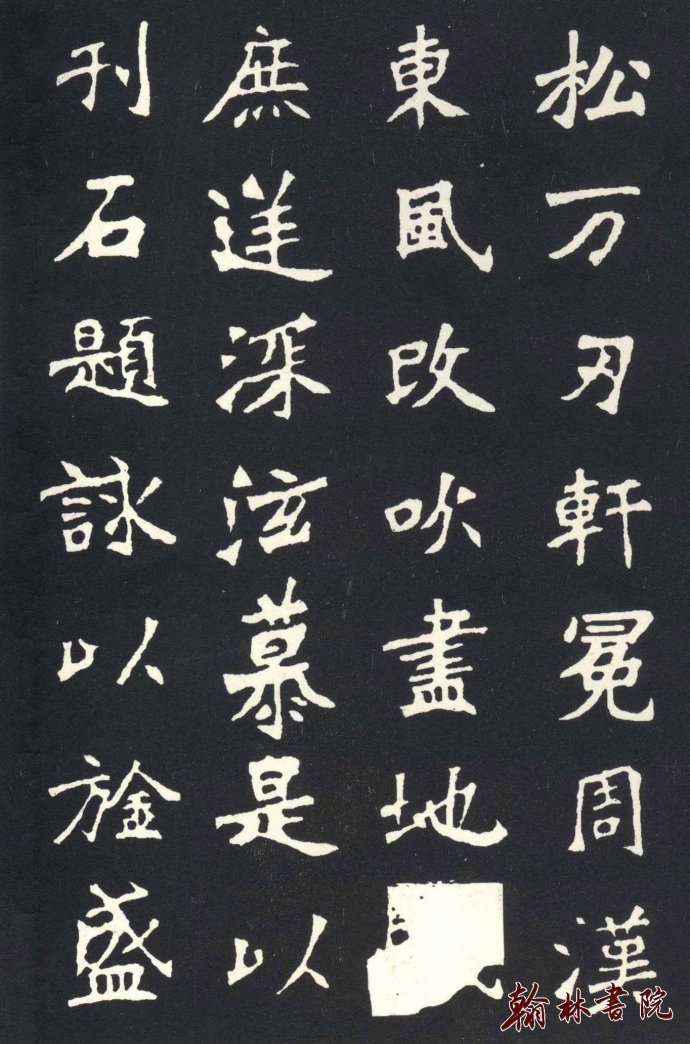 松万刃軒冕周漢
東風改吹盡地
庶深泫慕是以
刊石題詠以旌盛
翰林書院